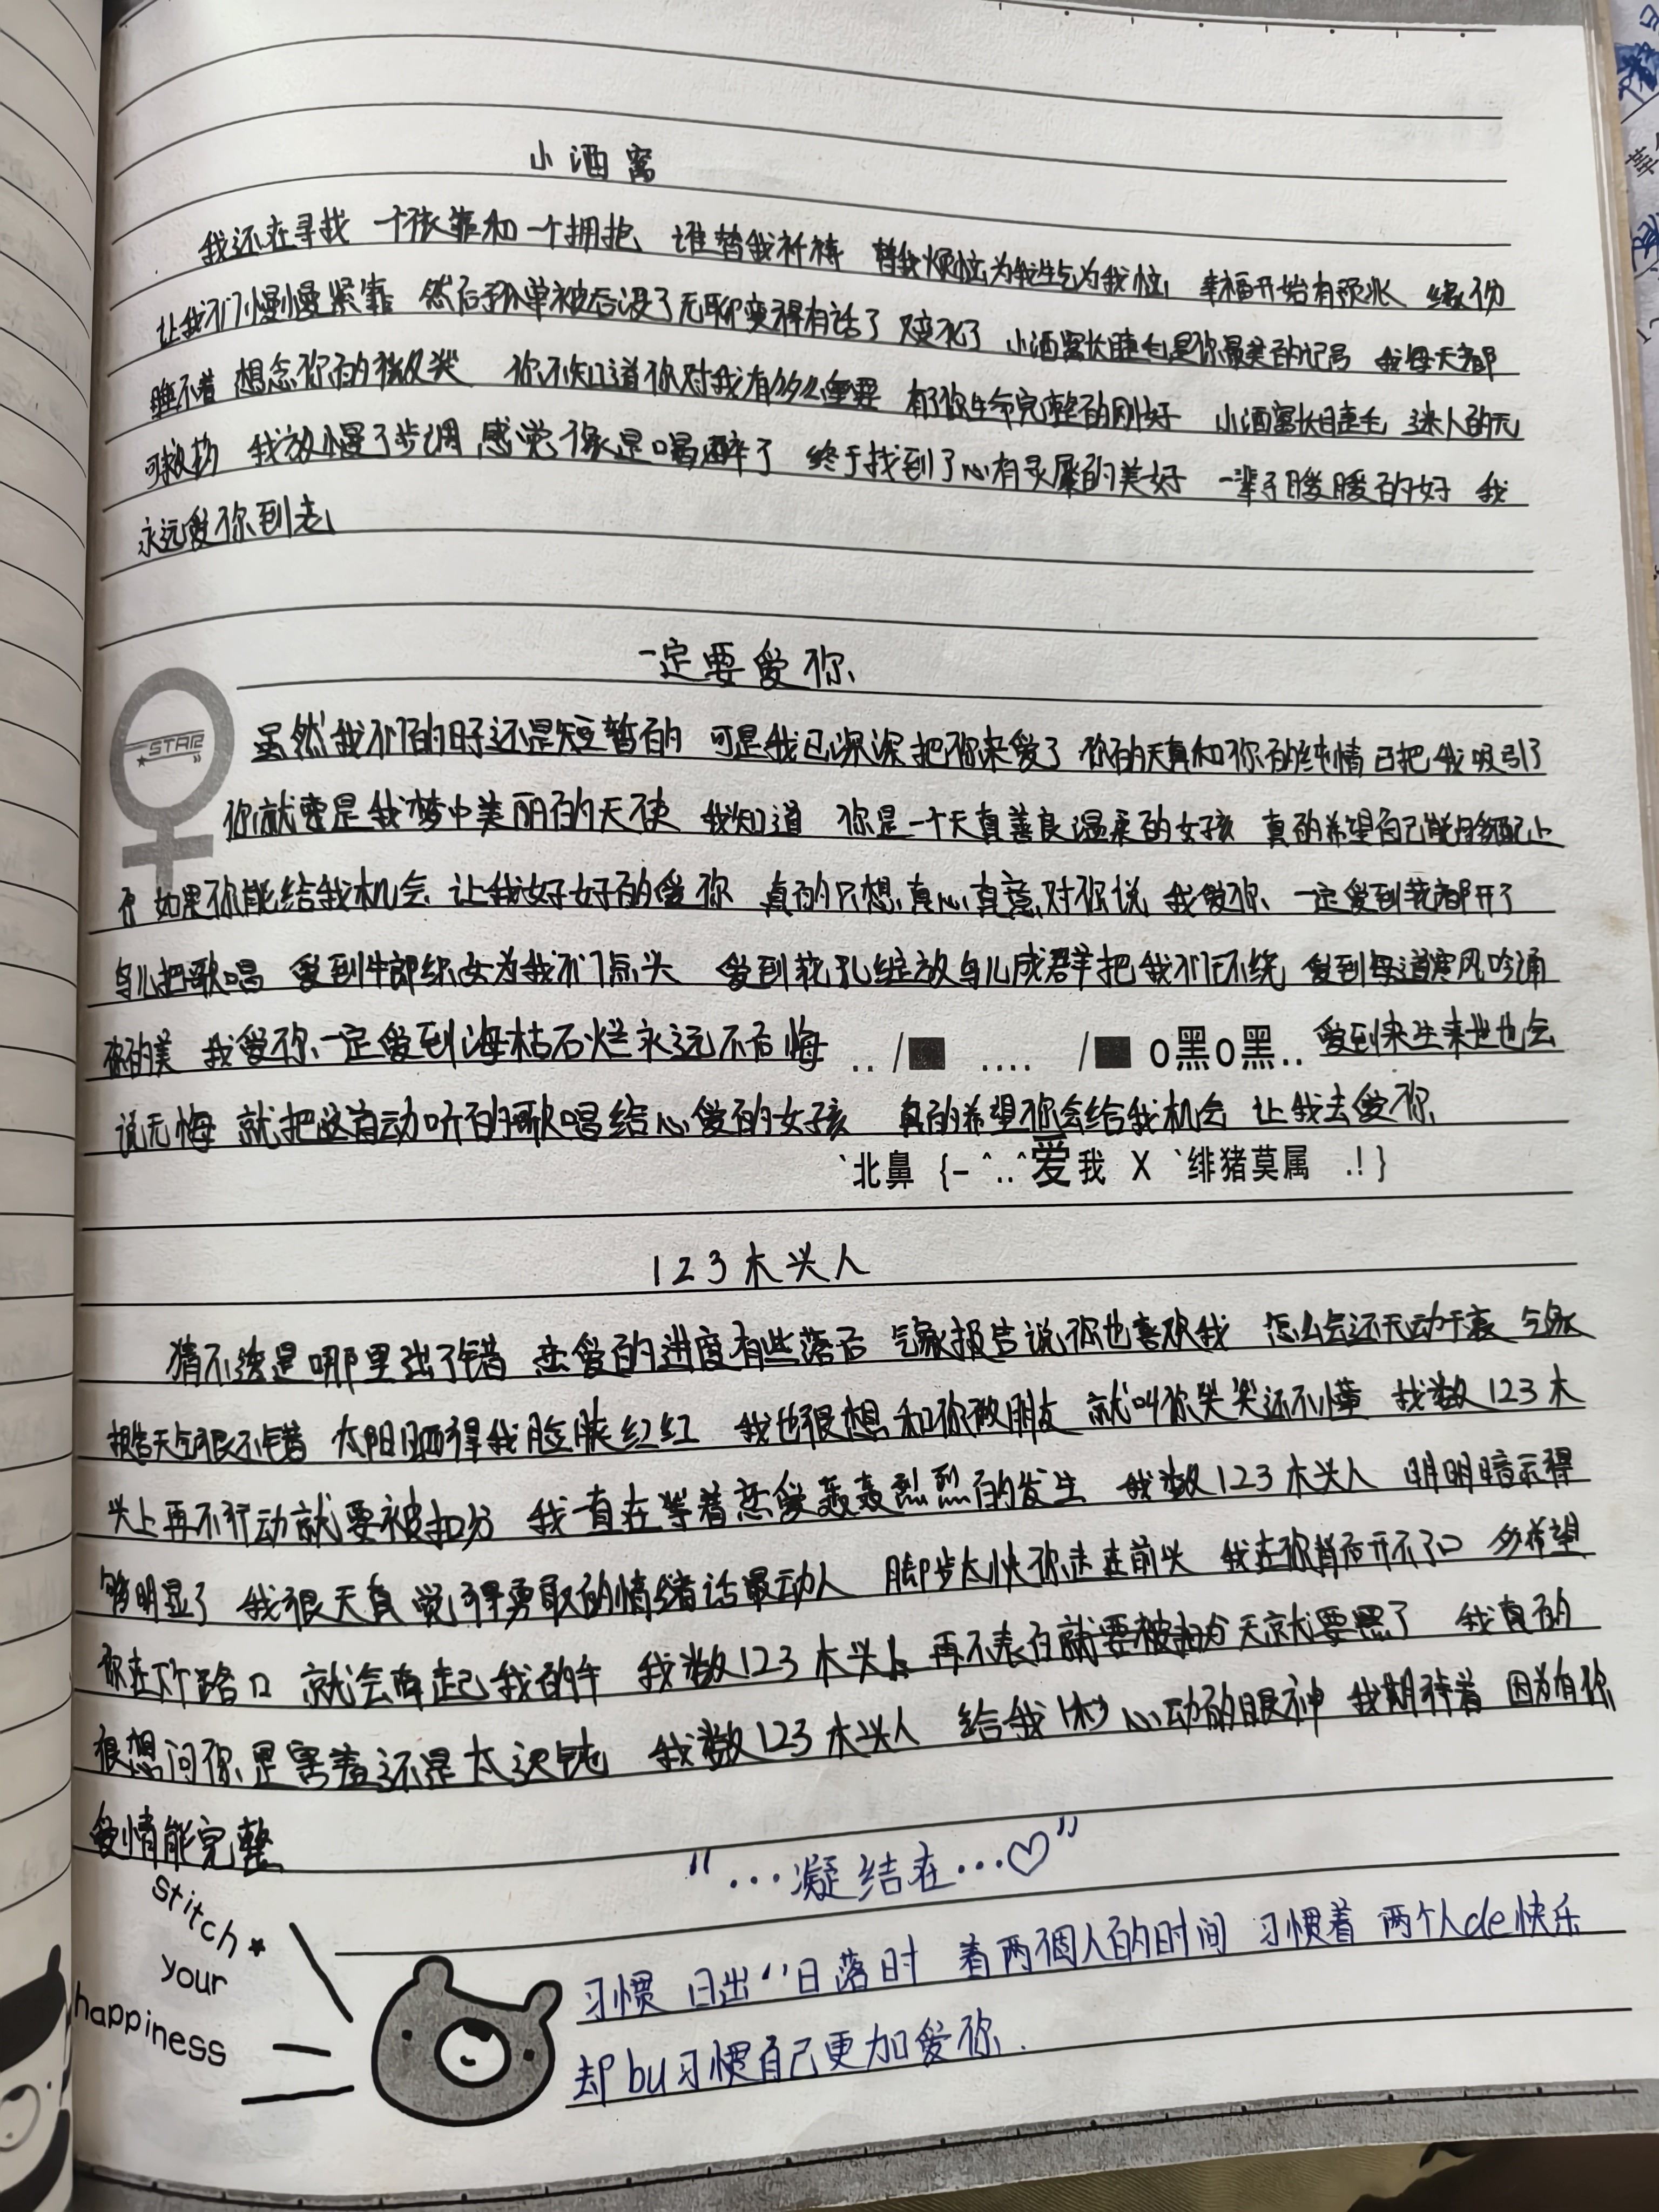 小酒窝
我还在寻找 一个依靠和一个拥抱 谁替我祈祷 替我烦恼为我生气为我恼 幸福开始有预兆 缘份
让我们慢慢紧靠 然后孤单被吞没了无聊变得有话了 变化了 小酒窝长睫毛是你最美的记号 我每天都
睡不着 想念你的微笑 你不知道你对我有多么重要 有了你生命完整的刚好 小酒窝长睫毛 迷人的无
可救药 我放慢了步调 感觉像是喝醉了 终于找到了心有灵犀的美好 一辈子暖暖的好 我
永远爱你到老
一定要爱你
STAR
虽然我们的日子还是短暂的 可是我已深深把你来爱了 你的天真和你的纯情已把我吸引了
你就要是我梦中美丽的天使 我知道 你是一个天真善良温柔的女孩 真的希望自己能够配上
如果你能给我机会 让我好好的爱你 真的只想真心真意对你说 我爱你 一定爱到花都开了
鸟儿把歌唱 爱到牛郎织女为我们点头 爱到花儿绽放鸟儿成群把我们环绕 爱到每道寒风吟诵
你的美 我爱你一定爱到海枯石烂永远不后悔 ‥ /■ ‥‥ /■ o黑o黑‥ 爱到来生来世也会
说无悔 就把这首动听的歌唱给心爱的女孩 真的希望你会给我机会 让我去爱你
`北鼻 {-^..^爱我 X `绯猪莫属 .!}
123木头人
猜不透是哪里出了错 恋爱的进度有些落后 气象报告说你也喜欢我 怎么会还无动于衷 气象
报告天气很不错 太阳晒得我脸颊红红 我也很想和你做朋友 就叫你笑笑还不懂 我数123木
头上再不行动就要被扣分 我一直在等着恋爱轰轰烈烈的发生 我数123木头人 明明暗示得
够明显了 我很天真 觉得勇敢的情绪话最动人 脚步太快你走在前头 我在你背后开不了口 多希望
你在下个路口 就会牵起我的手 我数123木头人 再不表白就要被扣分 天就要黑了 我真的
很想问你是害羞还是太迟钝 我数123木头人 给我 心动的眼神 我期待着 因为有你
爱情能完整
"…凝结在…♡"
stitch★
your
happiness
习惯 日出''日落时 着两個人的时间 习惯着 两个人de快乐
却bu习惯自己更加爱你.